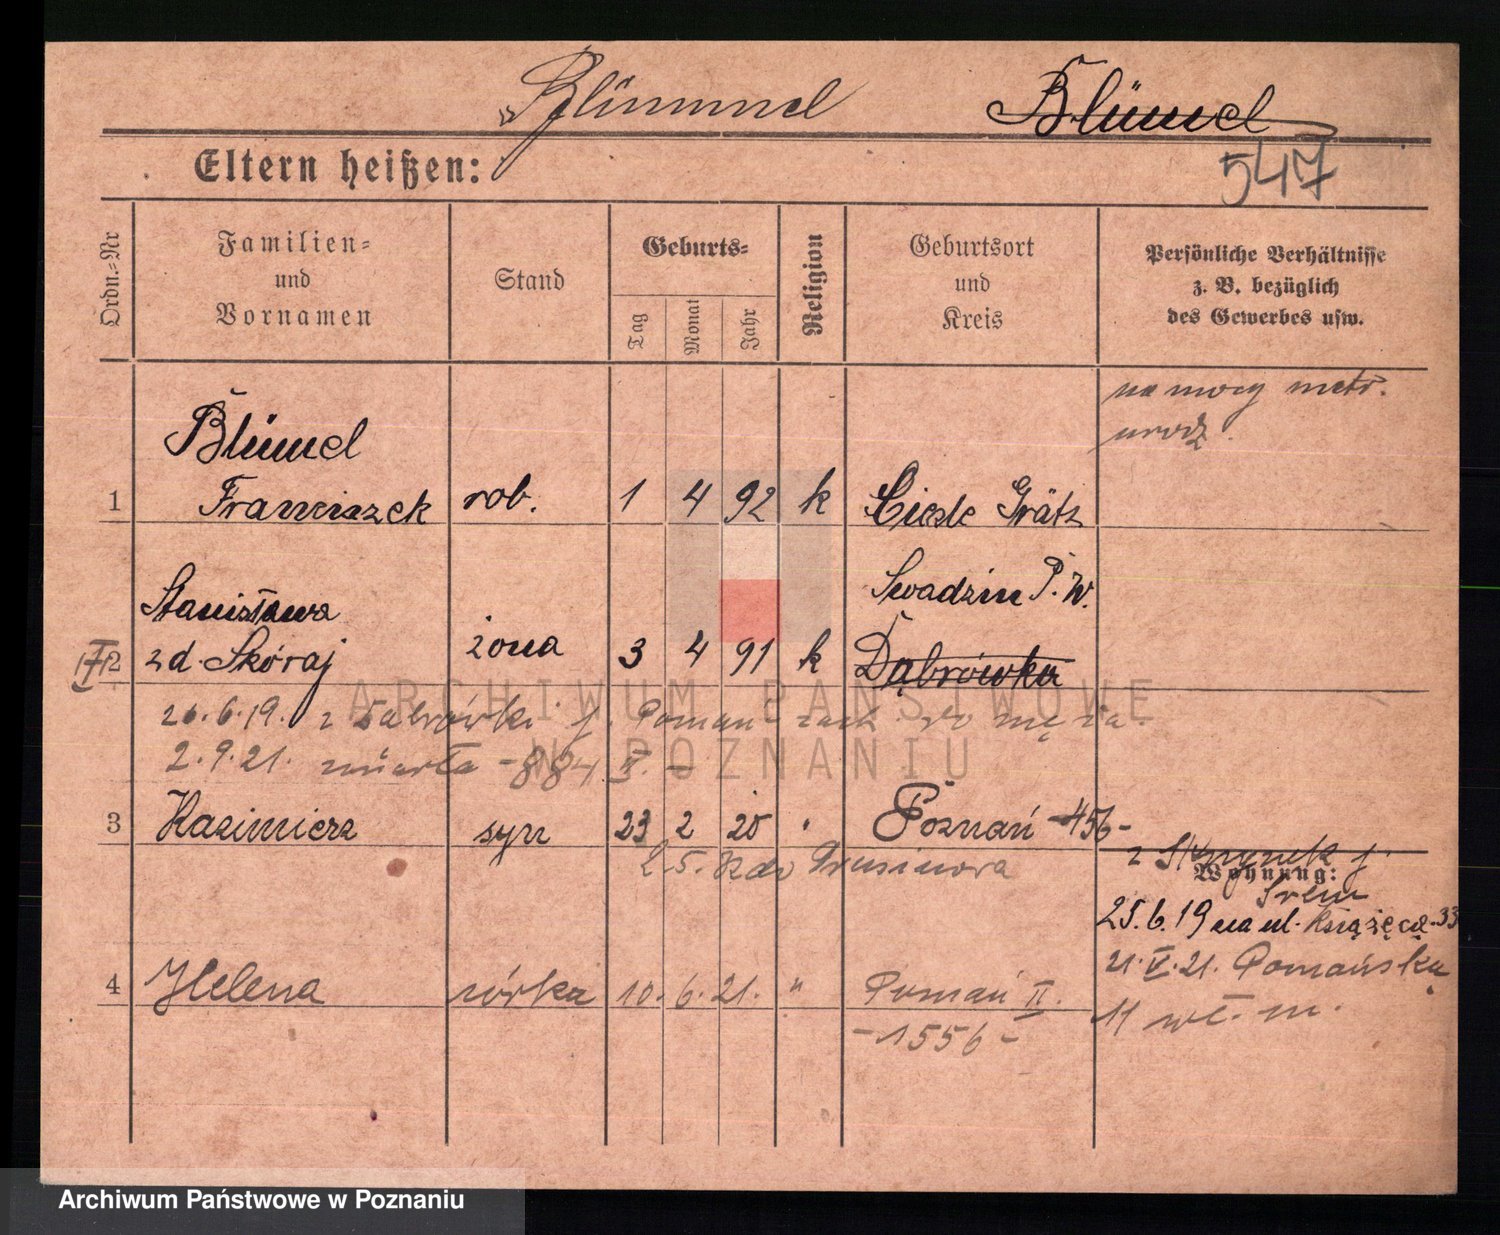 Blümmel Blümel
Eltern heißen:
547
Ordn.-Nr
Familien-
und
Vornamen
Stand
Geburts-
Tag
Monat
Jahr
Religion
Geburtsort
und
Kreis
Persönliche Verhältnisse
z. B. bezüglich
des Gewerbes usw.
na mocy metr.
urodz.
Blümel
1 Franciszek rob. 1 4 92 k Ciesle Grätz
Stanisława Swadzim P.W.
2 z d. Skóraj żona 3 4 91 k Dąbrówka
26.6.19. z Dabrówki p. Poznań
2.9.21. zmarła -884. II. -
3 Kazimierz syn 23 2 20 " Poznań -456-
2.5. do Prusinowa
Wohnung:
Śrem
25.6.19 na ul. Książęca 33
21.V.21. Poznańska
11 m.
4 Helena córka 10. 6. 21. " Poznań II.
-1556-
ARCHIWUM PAŃSTWOWE
W POZNANIU
Archiwum Państwowe w Poznaniu